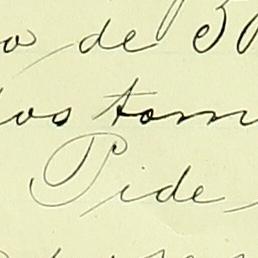 o de 30
los tom
Pide